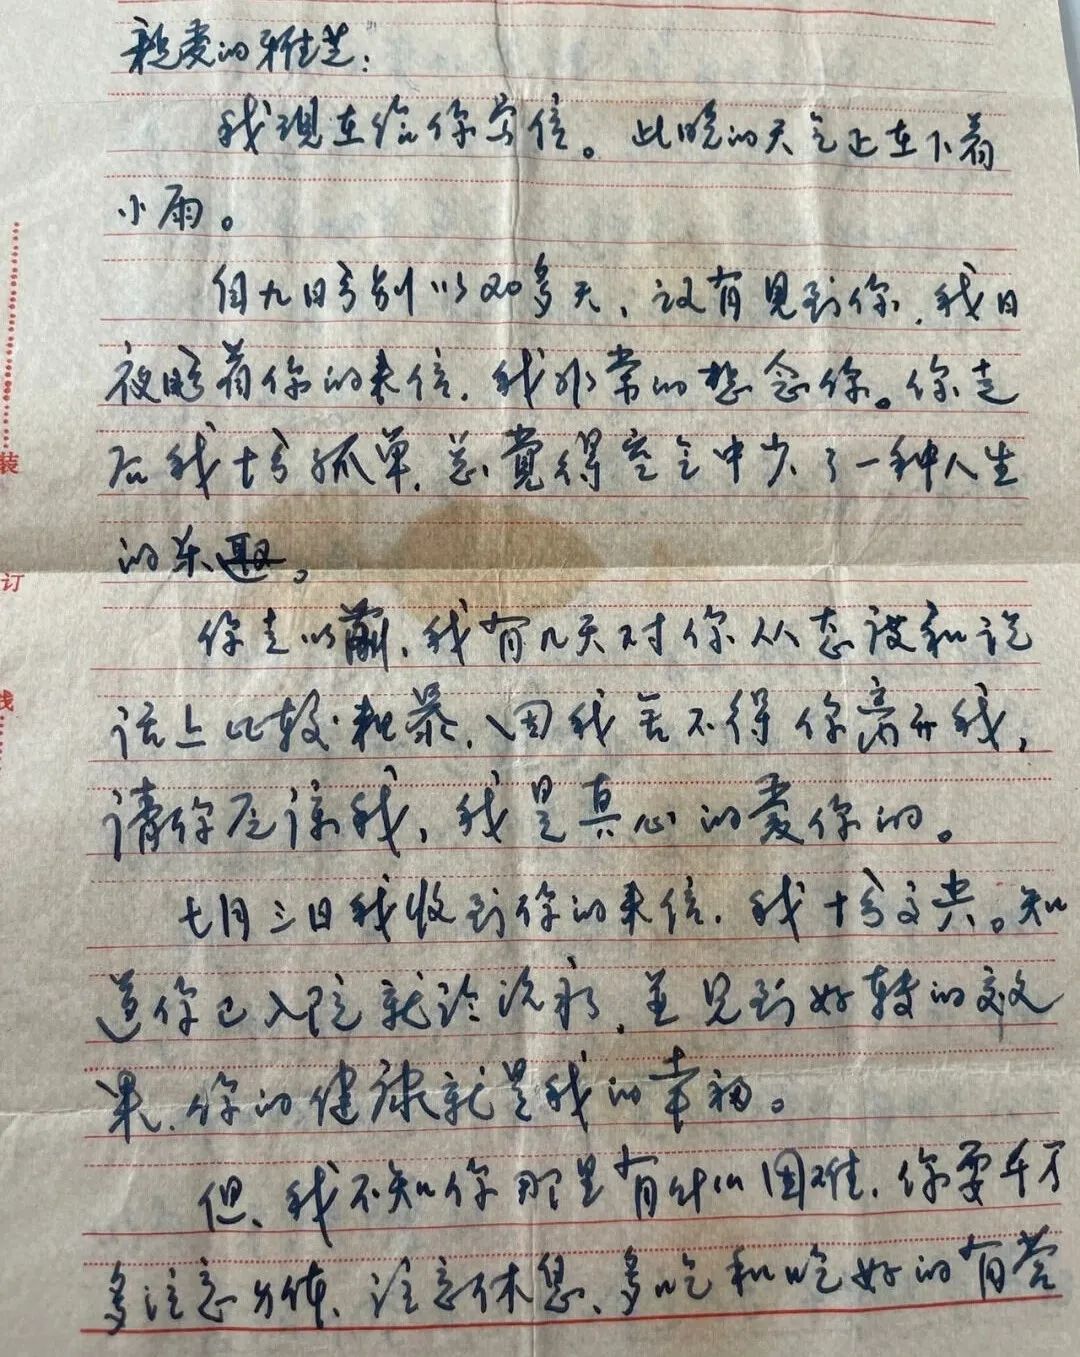 亲爱的雅芝：
我现在给你写信。此晚的天气正在下着
小雨。
自九日分别以20多天，没有见到你，我日
夜盼着你的来信，我非常的想念你。你走
后我十分孤单，总觉得空气中少了一种人生
的乐趣。
你走以前，我有几天对你从态度和说
话上比较粗暴，因我舍不得你离开我，
请你原谅我，我是真心的爱你的。
七月三日我收到你的来信，我十分高兴。知
道你已入院就诊治疗，并见到好转的效
果，你的健康就是我的幸福。
但、我不知你那里有什么困难，你要千万
多注意身体、注意休息、多吃和吃好的有营
装
订
线